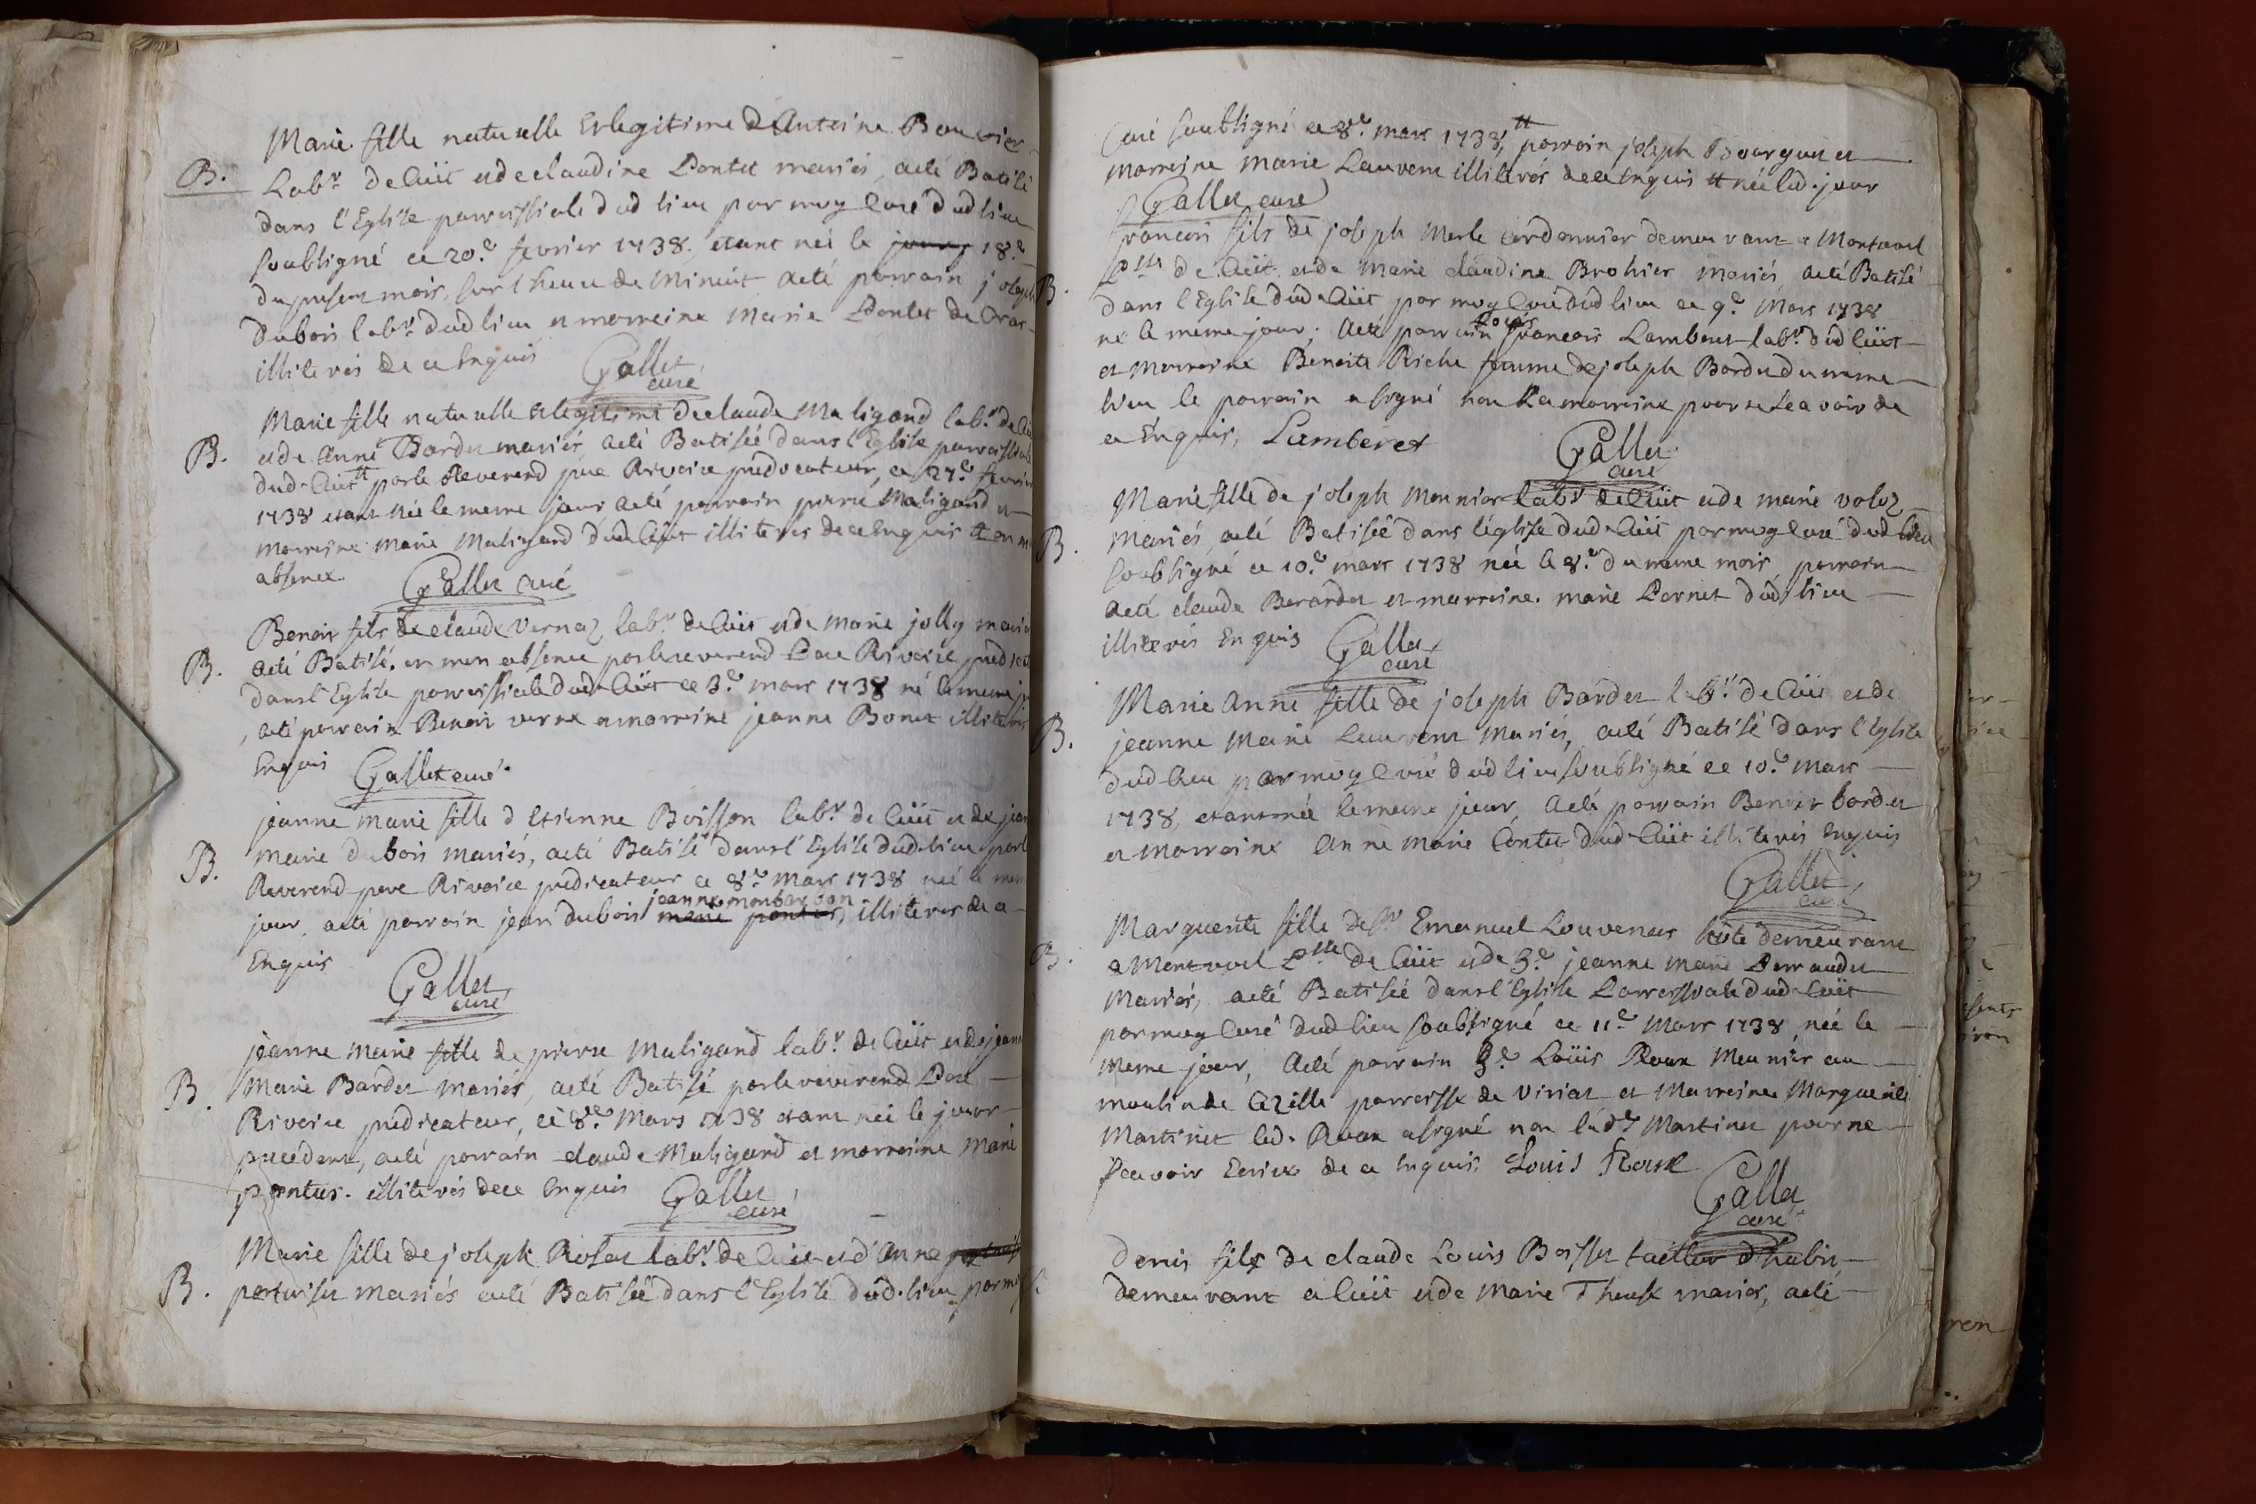 Marie fille naturelle et legitime d'Antoine Bouvier
B. Labr. de Cüit et de claudine Pontet mariés, aeté Batisé
dans l'Eglise parroissiale dud lieu par moy Curé dud lieu
soubsigné ce 20.e fevrier 1738. etant née le 18.e
du present mois, sur l'heure de Minuit aeté parrain joseph
Dubois labr. dud lieu et marreine Marie Pontet de
illiterés de ce Enquis
Gallet curé
Marie fille naturelle et legitime de claude Maligand labr. de
B. et de Anne Bardet mariés, aeté Batisée dans l'Eglise parroissiale
dud. Cüit # par le Reverend pere Rivoire predicateur, ce 27.e fevrier
1738 etant née le meme jour aeté parrain pierre Maligand et
marreine marie Maligand dud. Cüit illiterés de ce Enquis # en m
absence.
Gallet curé
Benoit fils de claude Vernaz labr. de Cüit et de Marie jolly marié
B. aeté Batisé. en mon absence par le reverend Pere Rivoire predicat
dans l'Eglise parroissiale dud. Cüit ce 3.e mars 1738 né le meme j
, aeté parrain Benoit verne et marreine jeanne Bonet illiterés
Enquis
Gallet curé.
jeanne marie fille d'Etienne Boisson labr. de Cüit et de jean
B. marie dubois mariés, aeté Batisé dans l'Eglise dud. lieu par le
Reverend pere Rivoire predicateur ce 8.e mars 1738 née le mem
jeanne monbarbon
jour, aeté parrain jean dubois marie pontus, illiterés de ce
Enquis
Gallet curé
jeanne marie fille de pierre Maligand labr. de Cüit et de jeann
B. Marie Bardet mariés, aeté Batisé par le reverend Pere
Rivoire predicateur, ce 8.e Mars 1738 etant née le jour
precedent, aeté parrain claude Maligand et marreine Marie
pontus. illiterés de ce Enquis
Gallet curé
Marie fille de joseph Rosat labr. de Cüit et d'Anne
B. perturiset mariés aeté Batisée dans l'Eglise dud. lieu par m
Curé soubsigné ce 8.e mars 1738, # parrain joseph Bourguet et
marreine marie Lauvent illiterés de ce Enquis # née led. jour
Gallet curé
francois fils de joseph Merle cordonnier demeurant a Montauel
B. psse de Cüit et de Marie claudine Brohier mariés, aeté Batisé
dans l'Eglise dud. Cüit par moy Curé dud lieu ce 9.e Mars 1738
né le meme jour. aeté parrain francois Lamberet labr. dud Cüit
et Marreine Benoite Riche femme de joseph Bardet du meme
lieu le parrain a signé non la marreine pour ne scavoir de
ce Enquis, Lamberet
Gallet curé
Marie fille de joseph Monnier labr de Cüit et de marie voloz
B. mariés, aeté Batisée dans l'église dud. Cüit par moy curé dud lieu
soubsigné ce 10.e mars 1738 née le 8.e du meme mois parrain
aeté claude Berardet et marreine. marie Cornet dud. lieu
illiterés Enquis
Gallet curé
Marie Anne fille de joseph Bardet labr. de Cüit et de
B. jeanne Marie Lauvent Mariés, aeté Batisé dans l'Eglise
dud. lieu par moy Curé dud lieu soubsigné ce 10.e Mars
1738, etant née le meme jour, aeté parrain Benoit bardet
et marreine Anne Marie Contet dud Cüit illiterés Enquis
Gallet curé
Marguerite fille de Sr Emanuel Louvenas hôte demeurant
B. a Montauel psse de Cüit et de jeanne Marie Perraudet
Mariés, aeté Batisée dans l'Eglise Parroissiale dud Cüit
par moy Curé dud lieu soubsigné ce 11.e Mars 1738 née le
meme jour, aeté parrain Loüis Roux Meunier au
moulin de Cezille parroisse de Viriat et Marreine Marguerite
Martinet led. Roux a signé non lad.e Martinet pour ne
scavoir Ecrire de ce Enquis. Louis Roux
Gallet curé
Denis fils de claude Louis Boisset tailleur d'habit
demeurant a Cüit et de Marie Therese mariés, aeté